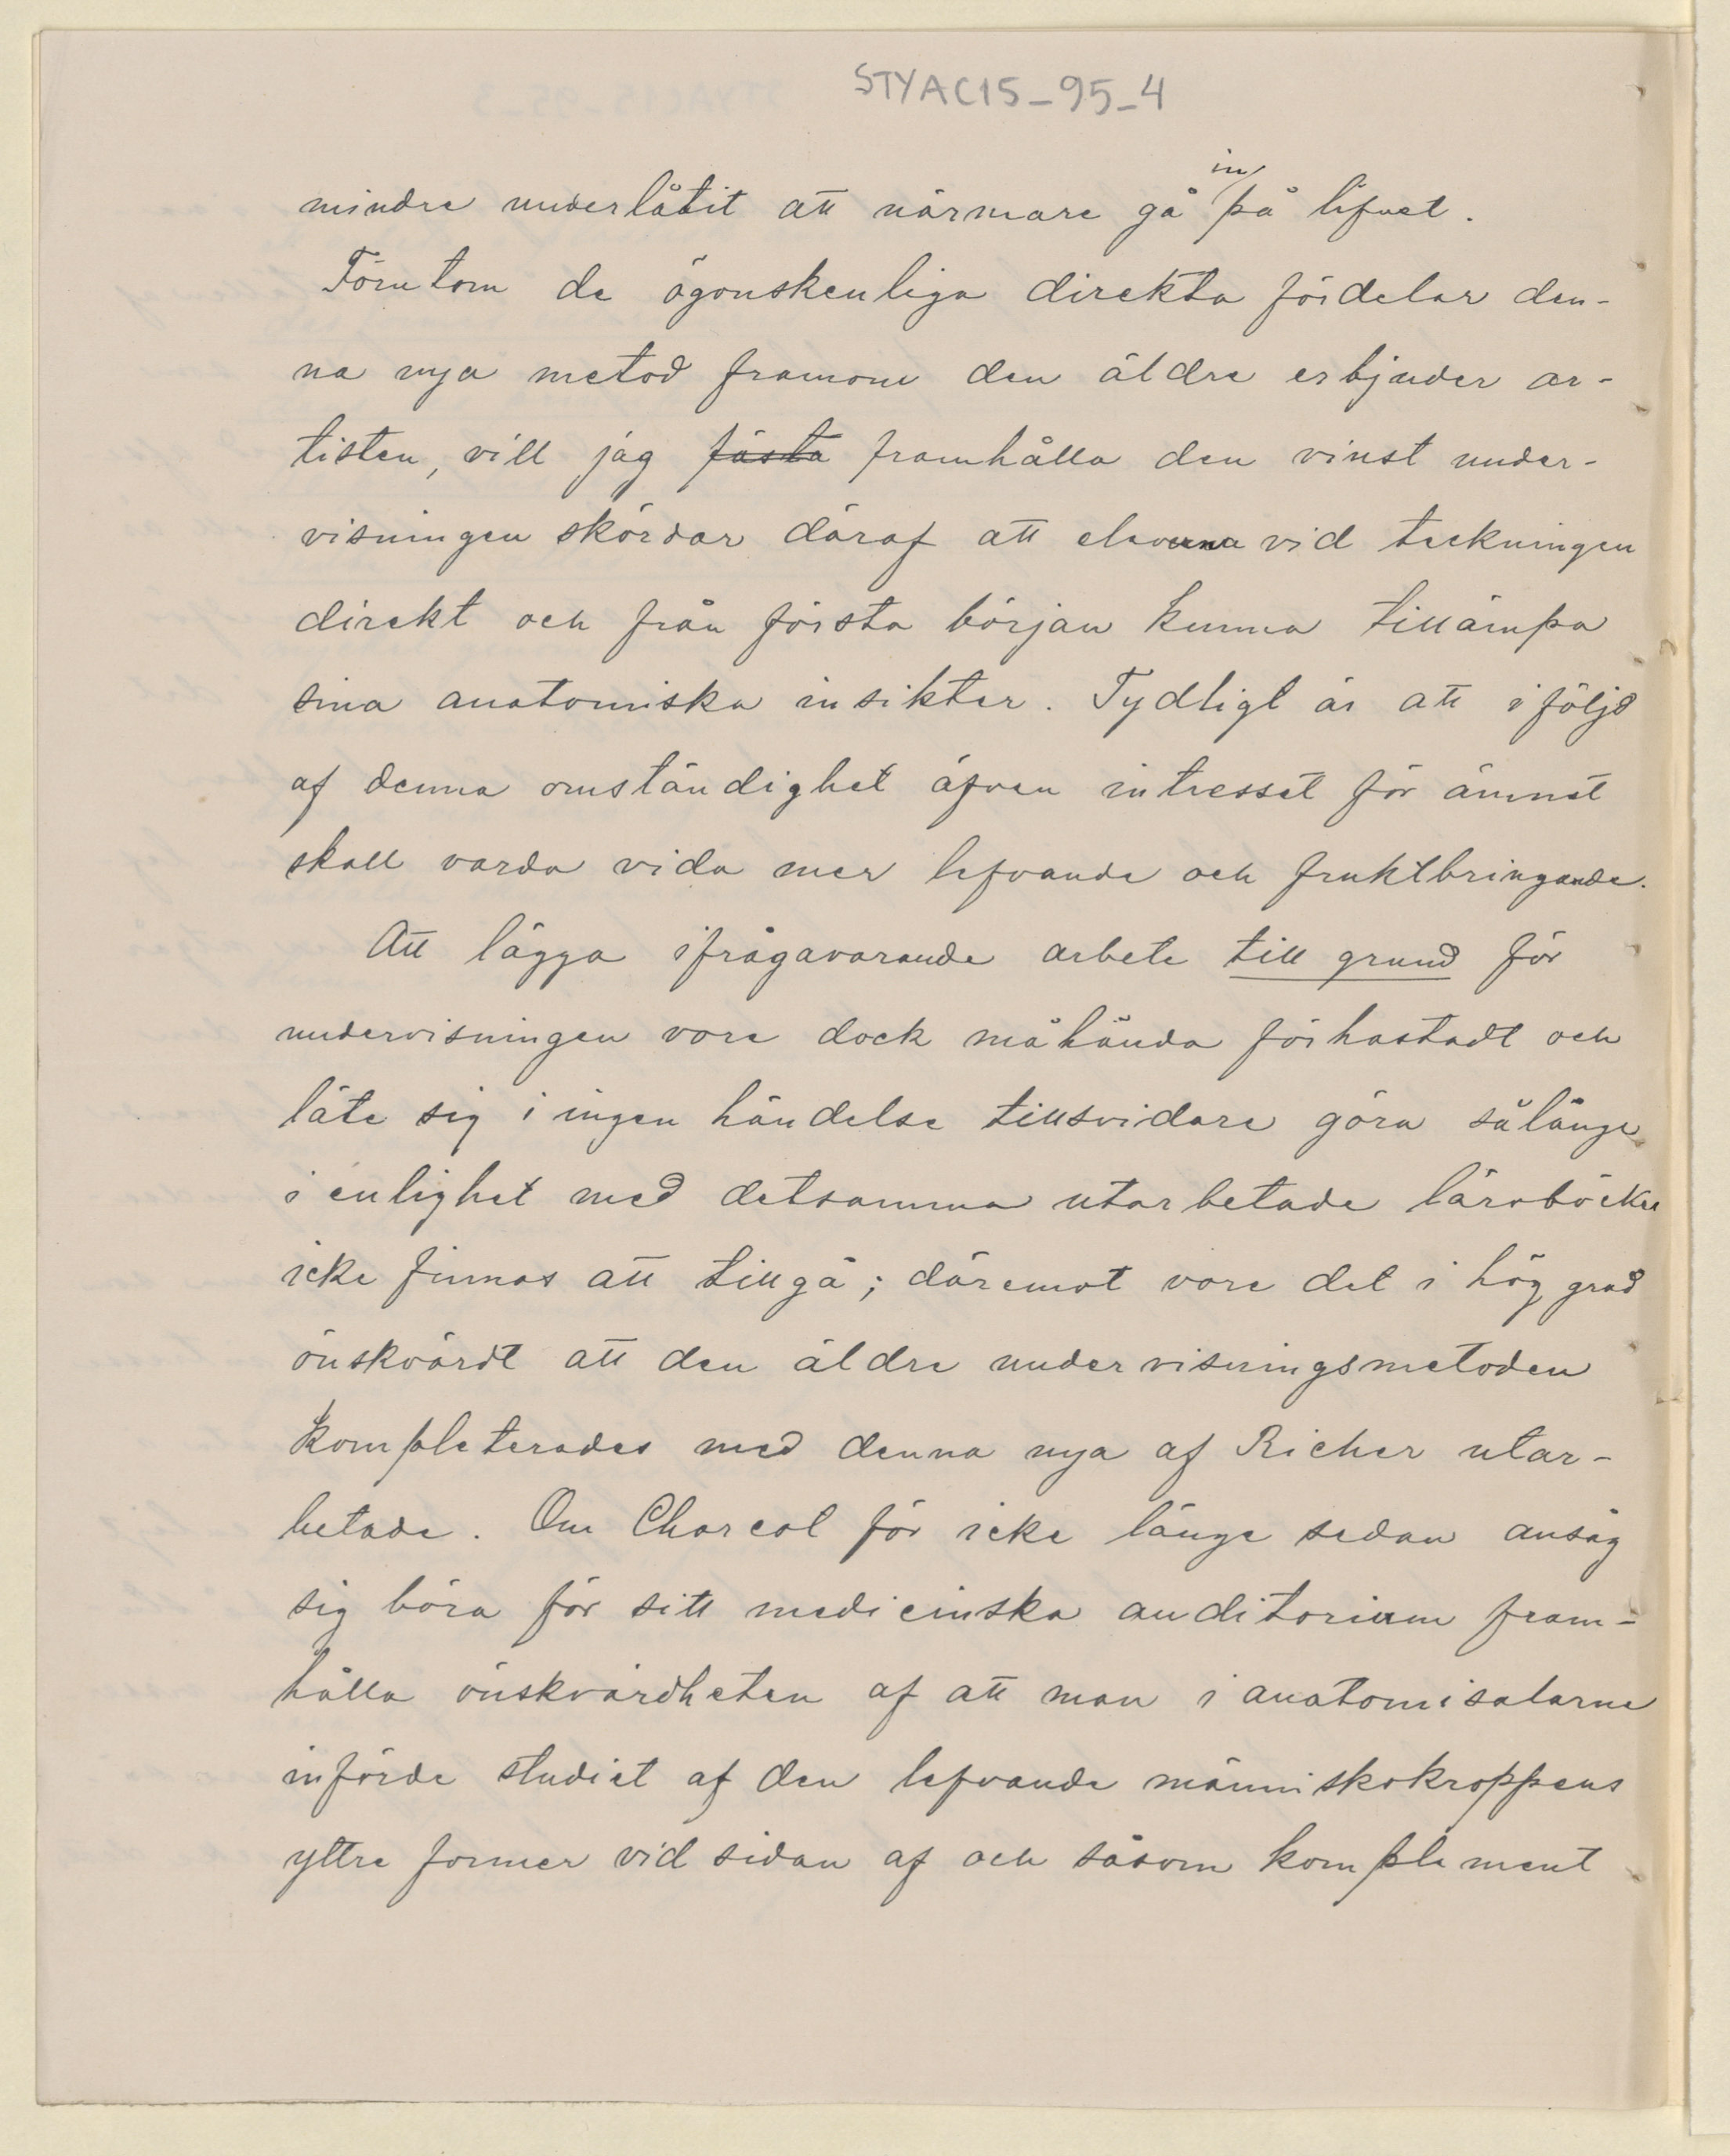 STYAC15_95_4
in
mindre underlåtit att närmare gå på lifvet.
Förutom de ögonskenliga direkta fördelar den-
na nya metod framom den äldre erbjuder ar-
tisten, vill jag fästa framhålla den vinst under-
visningen skördar däraf att eleverna vid teckningen
direkt och från första början kunna tillämpa
sina anatomiska insikter. Tydligt är att i följd
af denna omständighet äfven intresset för ämnet
skall varda vida mer lefvande och fruktbringande.
Att lägga ifrågavarande arbete till grund för
undervisningen vore dock måhända förhastadt och
läte sig i ingen händelse tillsvidare göra sålänge
i enlighet med detsamma utarbetade läroböcker
icke finnas att tillgå; däremot vore det i hög grad
önskvärdt att den äldre undervisningsmetoden
kompleterades med denna nya af Richer utar-
betade. Om Charcot för icke länge sedan ansåg
sig böra för sitt medicinska auditorium fram-
hålla önskvärdheten af att man i anatomisalarne
införde studiet af den lefvande människokroppens
yttre former vid sidan af och såsom komplement